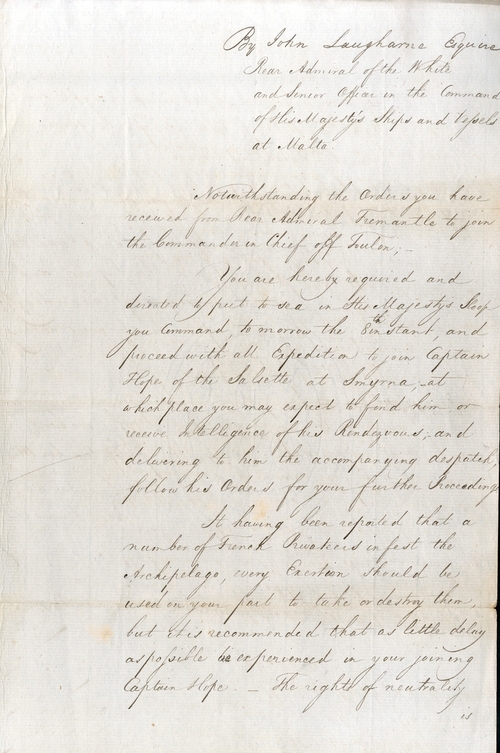 By John Laugharne Esquire
Rear Admiral of the White
and Senior Officer in the Command
of His Majesty's Ships and Vessels
at Malta.
Notwithstanding the Orders you have
received from Rear Admiral Fremantle to join
the Commander in Chief off Toulon;—
You are hereby required and
directed to put to sea in His Majesty's Sloop
you Command, to morrow the 8th instant and
proceed with all Expedition to join Captain
Hope of the Salsette at Smyrna, at
which place you may expect to find him or
receive Intelligence of his Rendezvous; and
delivering to him the accompanying despatch,
follow his Orders for your further Proceedings
It having been reported that a
number of French Privateers infest the
Archipelago, every Exertion should be
used on your part to take or destroy them,
but it is recommended that as little delay
as possible be experienced in your joining
Captain Hope. — The rights of neutrality
is